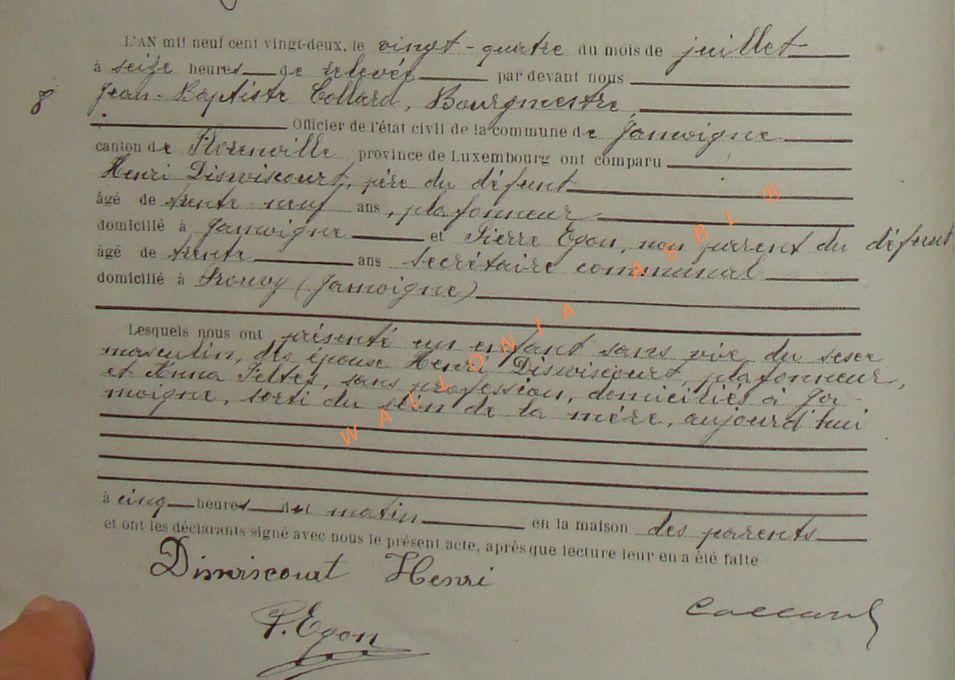 L'AN mil neuf cent vingt-deux, le vingt-quatre du mois de juillet
à seize heures de relevée par devant nous
8 Jean-Baptiste Collard, Bourgmestre,
Officier de l'état civil de la commune de Jamoigne
canton de Florenville province de Luxembourg ont comparu
Henri Disiviscourt, père du défunt
âgé de trente-neuf ans, plafonneur
domicilié à Jamoigne et Pierre Egon, non parent du défunt
âgé de trente ans secrétaire communal
domicilié à Prouvy (Jamoigne)
Lesquels nous ont présenté un enfant sans vie du sexe
masculin, des époux Henri Disiviscourt, plafonneur,
et Anna Feltes, sans profession, domiciliés à Ja-
moigne, sorti du sein de la mère, aujourd'hui
à cinq heures du matin en la maison des parents
et ont les déclarants signé avec nous le présent acte, après que lecture leur en a été faite
Disiviscourt Henri
P. Egon
Collard
WALLONIA ASBL ®